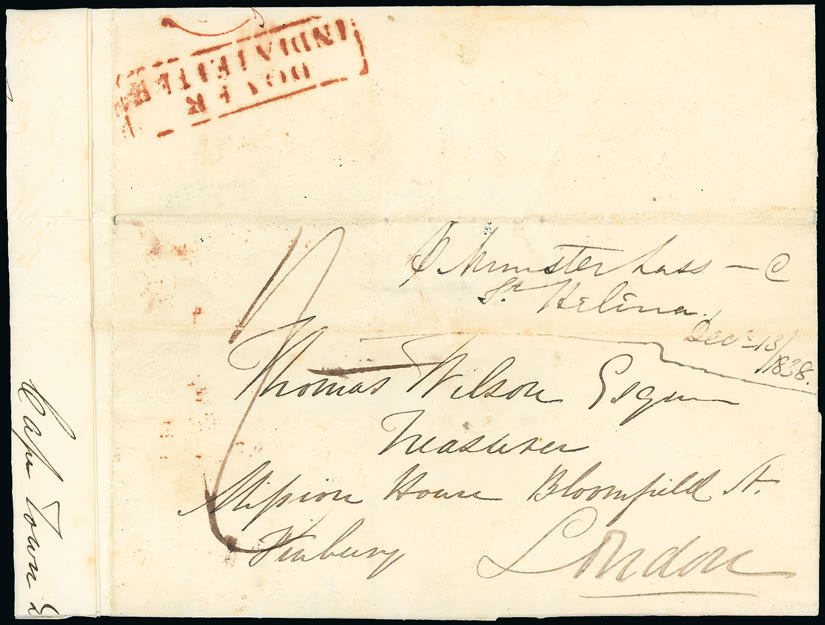 DOVER
INDIA LETTER
p Munster Lass – C
St Helena
Decr 13/
1838.
Thomas Wilson Esqr
Treasurer
Mission House Bloomfield St.
Finbury
London
Cape Town